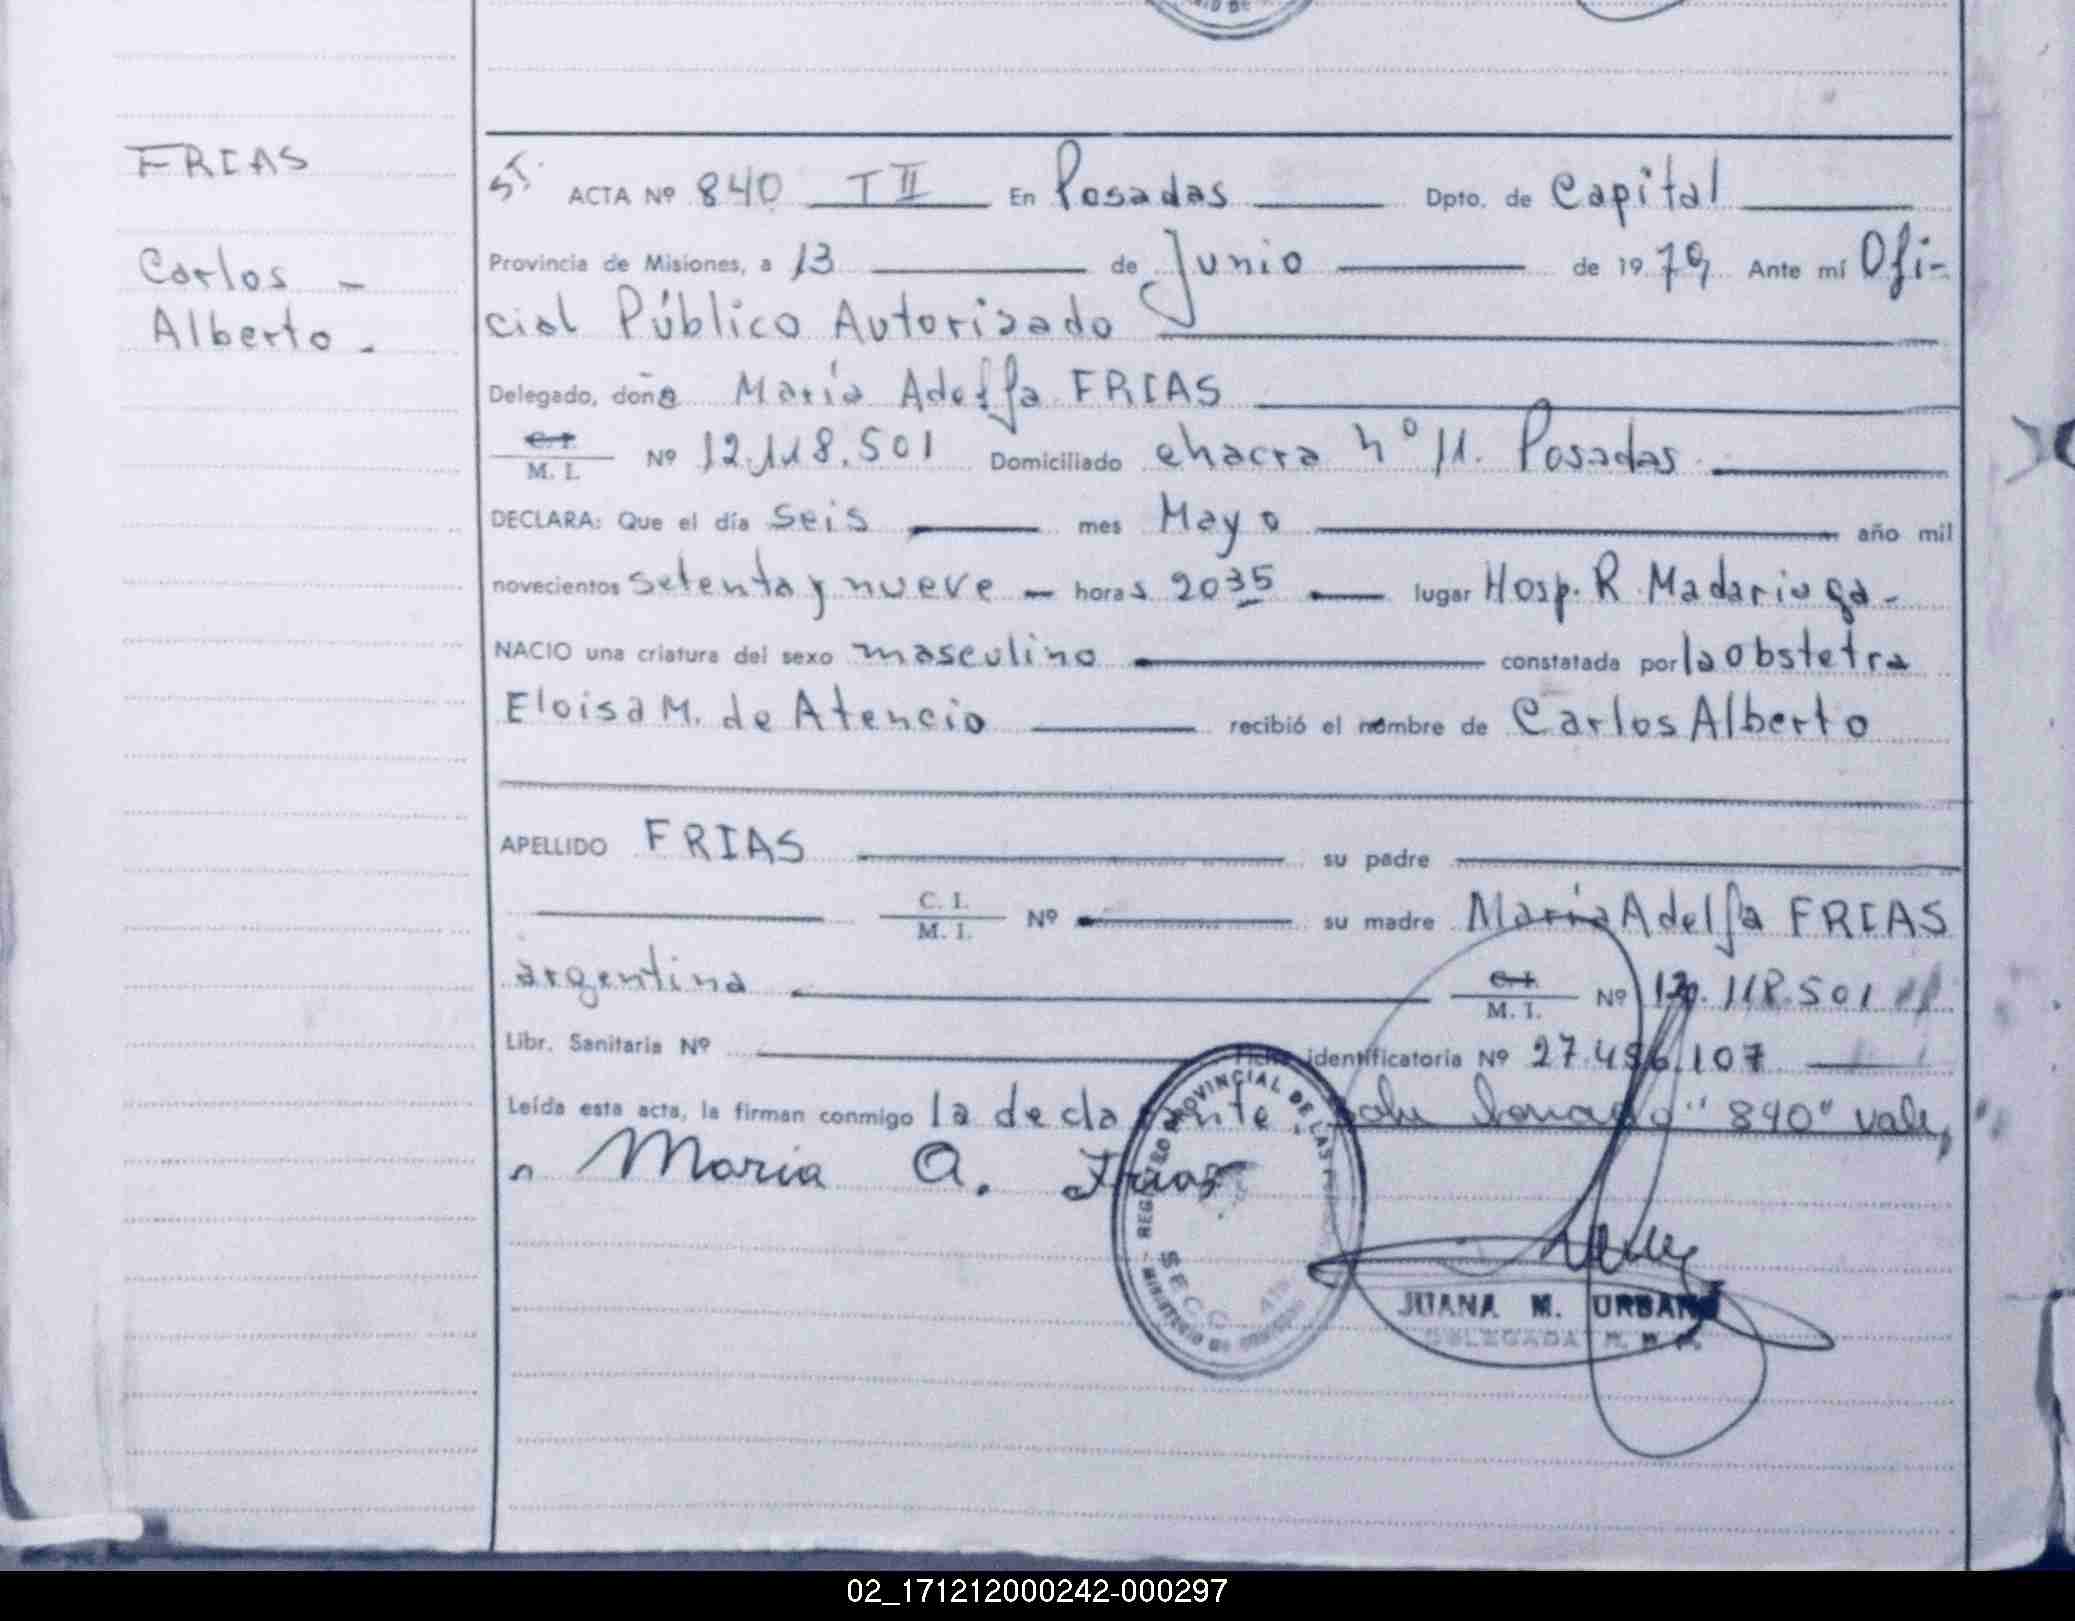 FRIAS
Carlos -
Alberto -
ST. ACTA Nº 840 T II En Posadas Dpto. de Capital
Provincia de Misiones, a 13 de Junio de 1979 Ante mí Ofi-
cial Público Autorizado
Delegado, doña María Adelfa FRIAS
C. I. / M. I. Nº 12.118.501 Domiciliado chacra nº 11. Posadas
DECLARA: Que el día seis mes Mayo año mil
novecientos setenta y nueve - horas 2035 lugar Hosp. R. Madariaga -
NACIO una criatura del sexo masculino constatada por la obstetra
Eloisa M. de Atencio recibió el nombre de Carlos Alberto
APELLIDO FRIAS su padre
C. I. / M. I. Nº su madre María Adelfa FRIAS
argentina C. I. / M. I. Nº 12.118.501
Libr. Sanitaria Nº Ficha identificatoria Nº 27.456.107
Leída esta acta, la firman conmigo la declarante. sobre borrado "840" vale,
Maria A. Frias
REGISTRO PROVINCIAL DE LAS
SECC.
MINISTERIO DE GOBIERNO
JUANA M. URBANO
DELEGADA
02_171212000242-000297